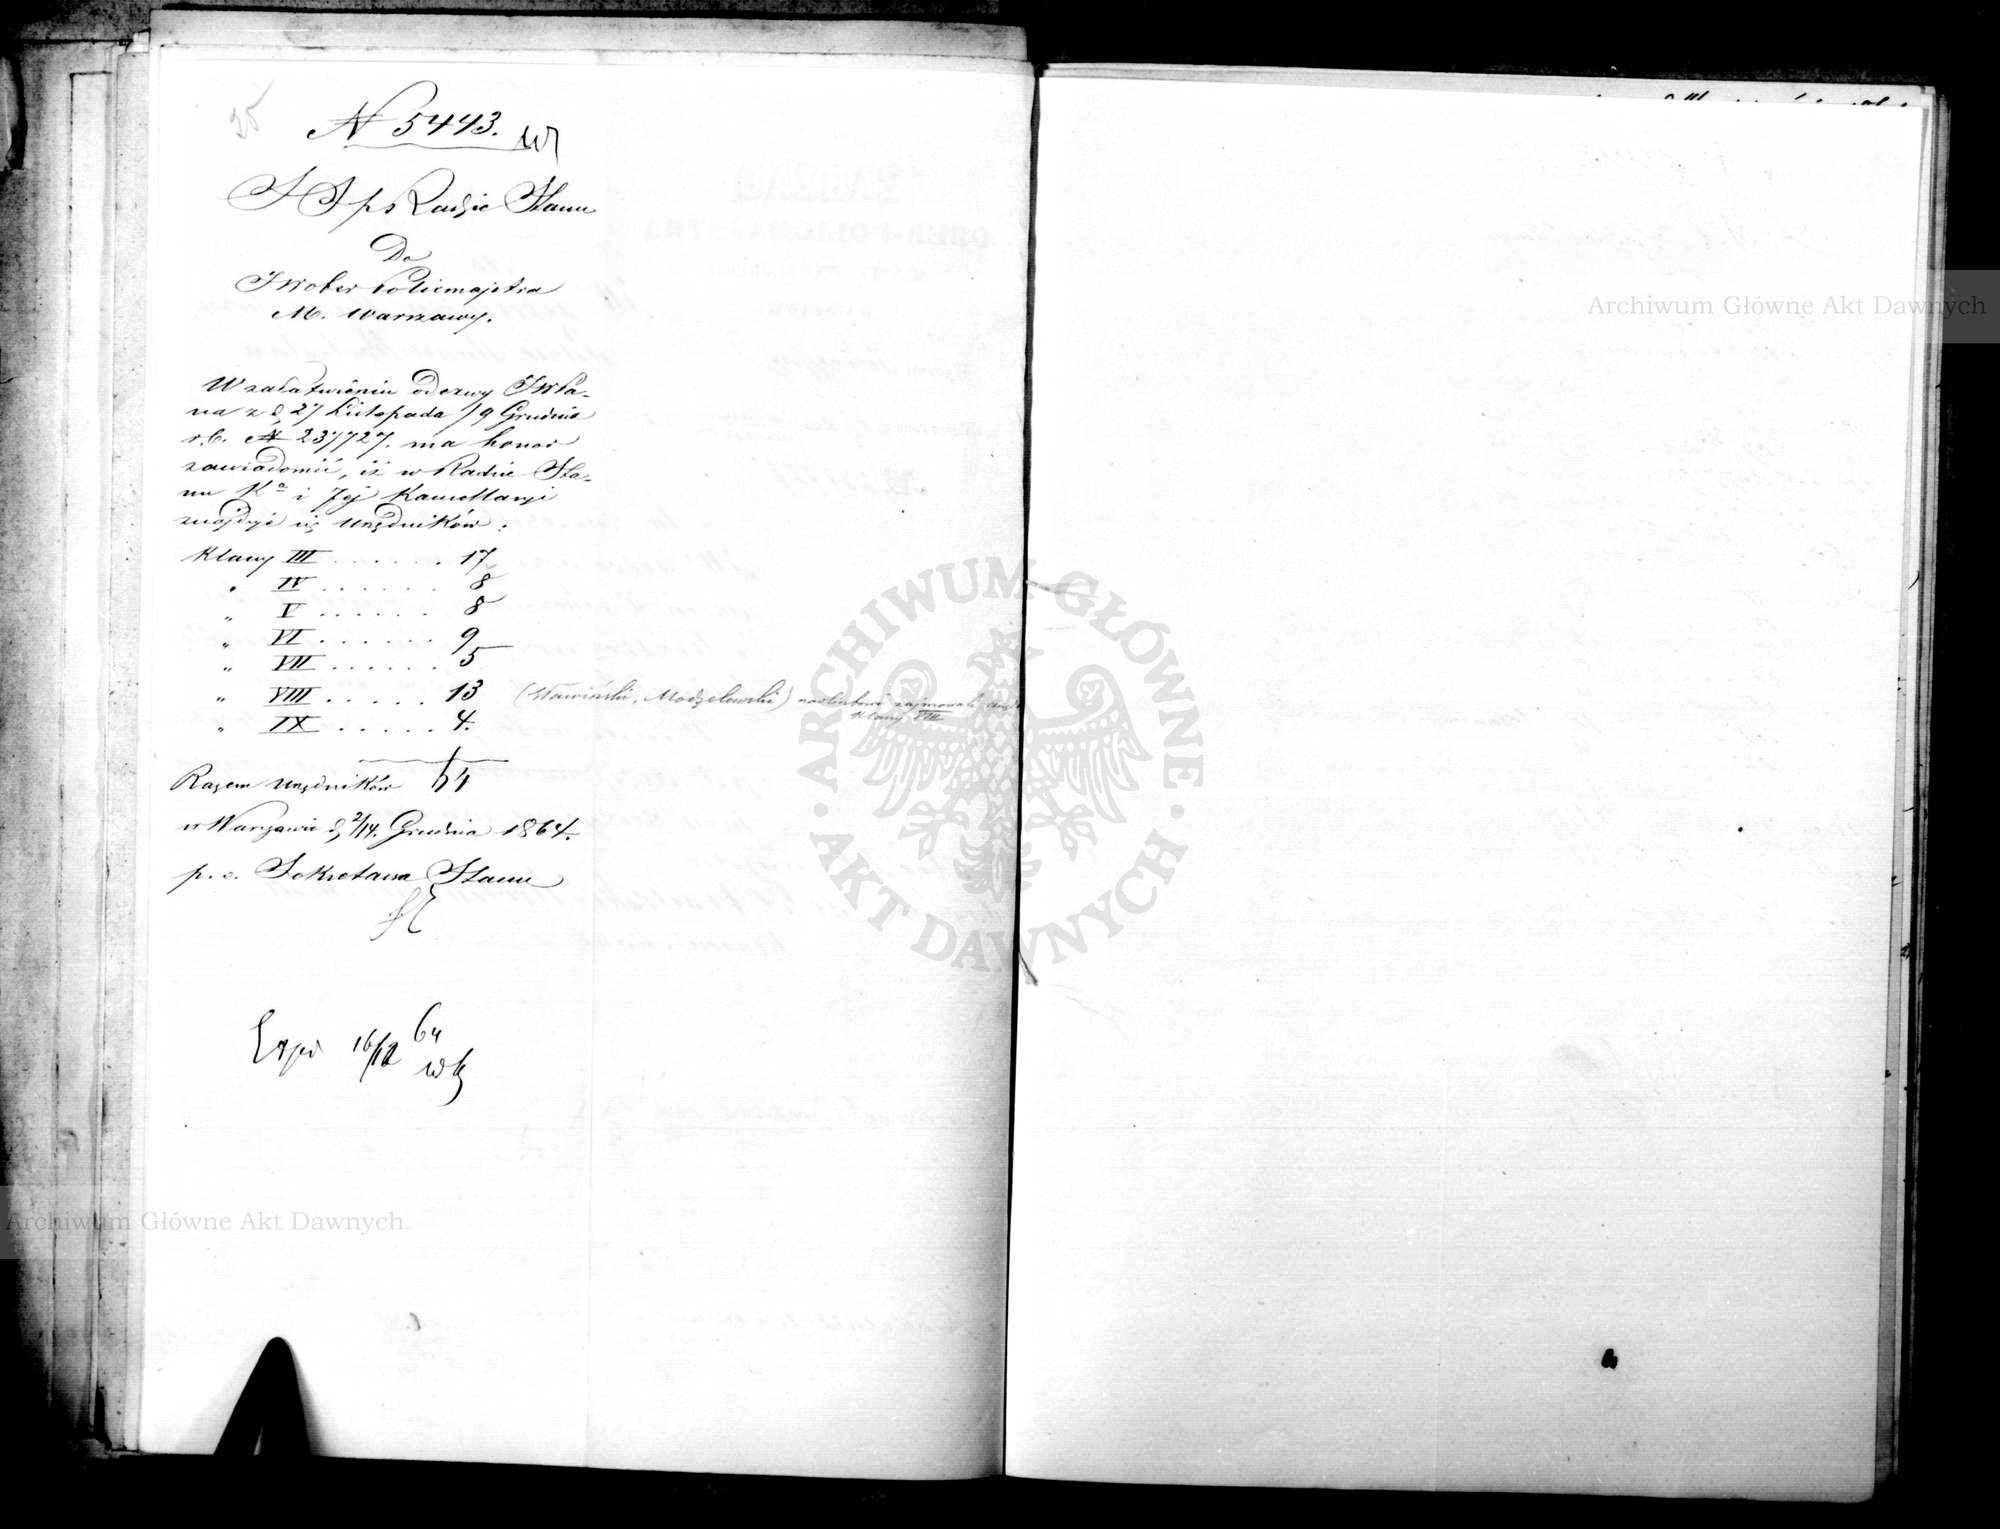 N 5443.
S S ps Radzie Stanu
Do
JWOber Policmajstra
M. Warszawy.
W załatwieniu odezwy JWPa-
na z d 27 Listopada /9 Grudnia
r.b. N 237727. ma honor
zawiadomić, iż w Radzie Sta-
nu i Jej Kancellaryi
znajduje się Urzędników:
Klassy III . . . . . . 17
" IV . . . . . . . 8
" V . . . . . . 8
" VI . . . . . . 9
" VII . . . . . . 5
" VIII . . . . . 13 (Sławiński, Modzelewski) zajmowali
klassy VIII
" IX . . . . . 4.
Razem Urzędników 64
w Warszawie d 2/14. Grudnia 1864.
p. o. Sekretarza Stanu
Exp 16/12 64
ARCHIWUM GŁÓWNE AKT DAWNYCH
Archiwum Główne Akt Dawnych
Archiwum Główne Akt Dawnych